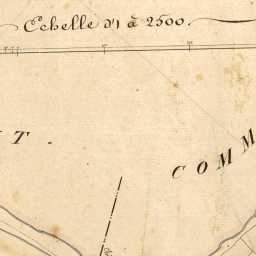 Echelle d'1 à 2500.
T.
COMM